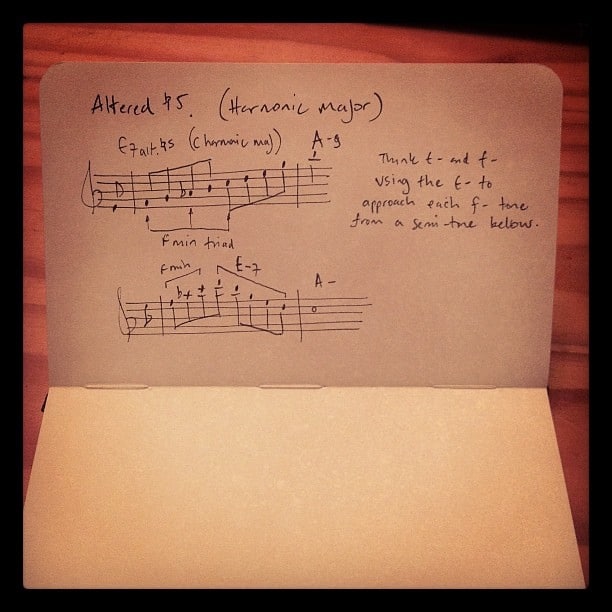 Altered ♮5. (Harmonic major)
E7alt.♮5 (C harmonic maj) A-9
F min triad
Think E- and F-
using the E- to
approach each F- tone
from a semi-tone below.
F min E-7 A-